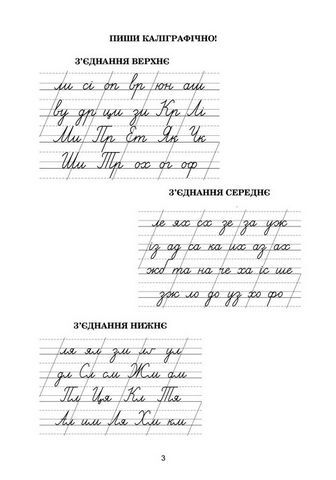 ПИШИ КАЛІГРАФІЧНО!
З’ЄДНАННЯ ВЕРХНЄ
ли сі оп вр юн аш
ву др цм зи Кр Лі
Ми Пр Ет Як Чк
Ши Тр ох ог оф
З’ЄДНАННЯ СЕРЕДНЄ
ле ях сх зе за уж
із ад са ка их аз ах
жб та на че ха іс ше
зж ло до уз хо фо
З’ЄДНАННЯ НИЖНЄ
ля ял зм ил ул
дл Сл см Жм ам
Пл Ця Кл Тя
Ал им Ля Хм км
3